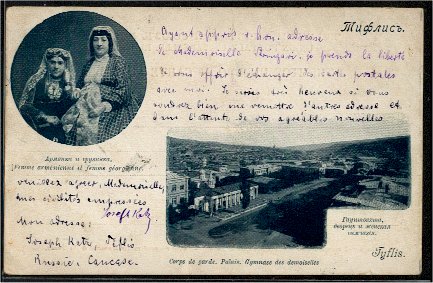 Тифлисъ.
Ayant appris v. hon. adresse
de Mademoiselle je prends la liberté
de vous offrir d'échanger des cartes postales
avec moi. Je serais très heureux si vous
voudrez bien me remettre d'autres adresse et
dans l'attente de vos agréables nouvelles
Армянка и грузинка.
(Femme arménienne et femme géorgienne.
veuillez agréer, Mademoiselle,
mes saluts empressés
Joseph Katz
Mon adresse:
Joseph Katz, Tiflis
Russie. Caucase.
Гауптвахта,
дворецъ и женская
гимназія.
Tyflis.
Corps de garde. Palais. Gymnase des demoiselles